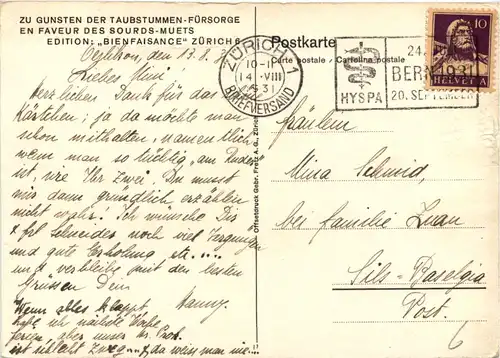 ZU GUNSTEN DER TAUBSTUMMEN-FÜRSORGE
EN FAVEUR DES SOURDS-MUETS
EDITION: „BIENFAISANCE" ZÜRICH 6
Oerlikon, den 13.8.31
Liebes Mini
Herzlichen Dank für das
Kärtchen; ja da möchte man
schon mithalten, namentlich
wenn man so tüchtig „am Ruder
ist, wie Ihr Zwei. Du musst
mir dann gründlich erzählen
nicht wahr! Ich wünsche Dir
& Schneider noch viel Vergnügen
und gute Erholung etc.....
und verbleibe mit den besten
Grüssen Dein
Wenn alles klappt,
ich nächste Woche
Ferien aber unser
ist schlecht da weiss man nie...!
Offsetdruck Gebr. Fretz A.G., Zürich
Postkarte
Carte postale Cartolina postale
ZÜRICH 1
10-11
14.VIII
31
BRIEFVERSAND
24.
BERN 1931
HYSPA 20. SEPTEMBER
10
HELVETIA
Fräulein
Mina Schmid,
bei Familie Zuan
Sils-Baselgia
Post.
6